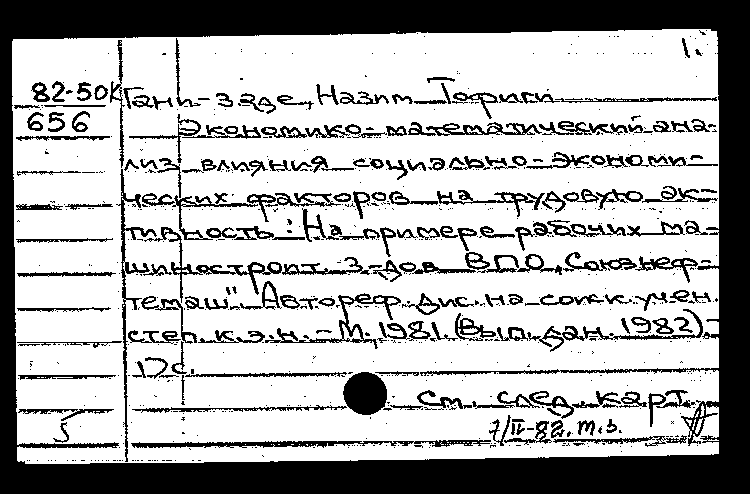 1.
82-50К Гани-Заде, Назим Тофиги
656 Экономико-математический ана-
лиз влияния социально-экономи-
ческих факторов на трудовую ак-
тивность: На примере рабочих ма-
шиностроит. з-дов ВПО „Союзнеф-
темаш". Автореф. дис. на соиск. учен.
степ. к.э.н. - М., 1981. (Вып. дан. 1982).-
17с.
См. след. карт.
5 7/IV-82. т.з.